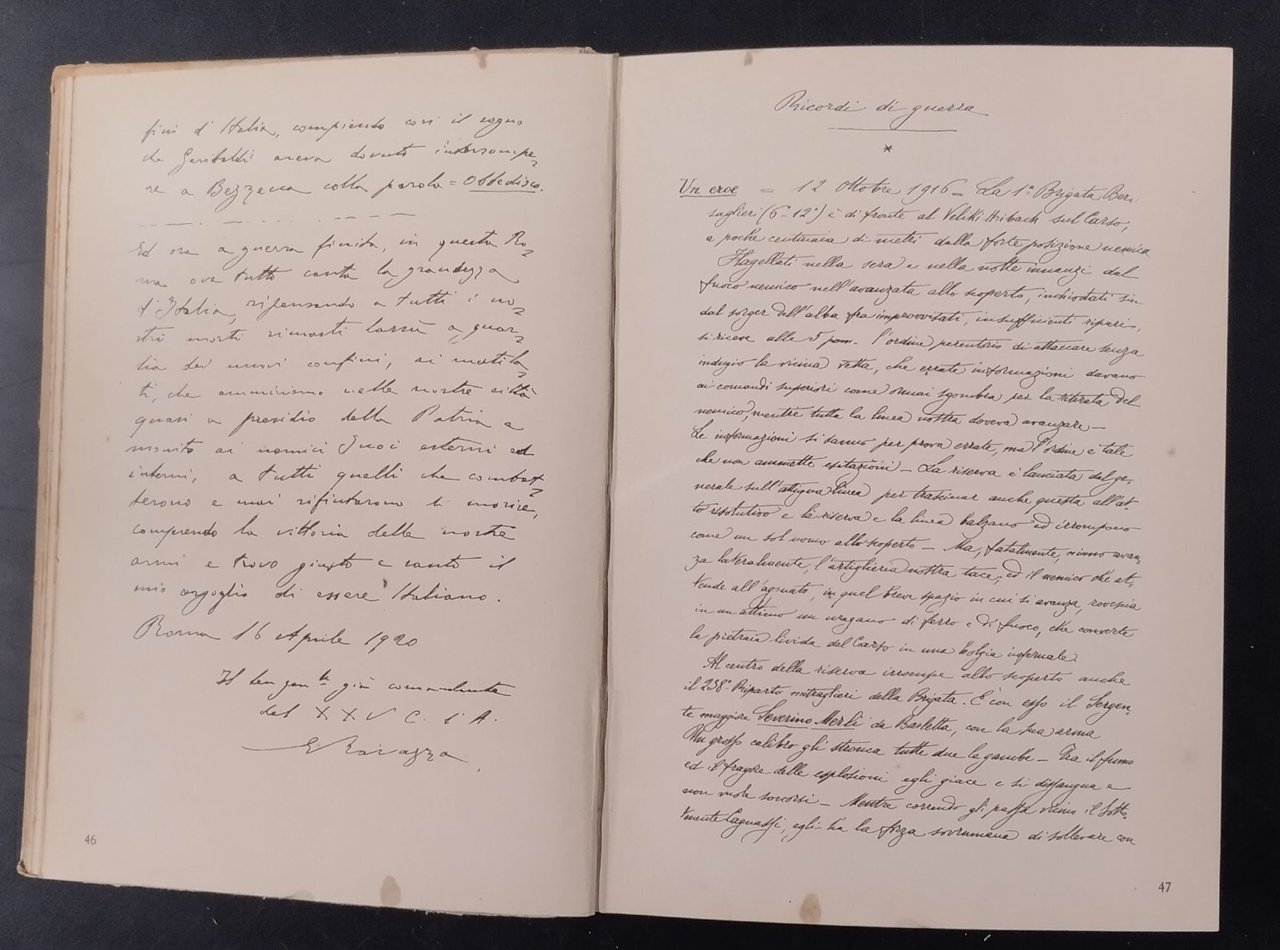 fini d'Italia, compiendo così il sogno
che Garibaldi aveva dovuto interrompe=
re a Bezzecca colla parola = Obbedisco.
Ed ora a guerra finita, in questa Ro=
ma ove tutto canta la grandezza
d'Italia, ripensando a tutti i no=
stri morti rimasti lassù a guar=
dia dei nuovi confini, ai mutila=
ti, che ammiriamo nelle nostre città
quasi a presidio della Patria e
monito ai nemici suoi esterni ed
interni, a tutti quelli che combat=
terono e mai rifiutarono di morire,
comprendo la vittoria delle nostre
armi e trovo giusto e santo il
mio orgoglio di essere Italiano.
Roma 16 Aprile 1920
Il ten. gen.le già comandante
del XXV C. d'A.
E Ravazza
46
Ricordi di guerra
*
Un eroe = 12 Ottobre 1916 - La 1ª Brigata Ber=
saglieri (6-12°) è di fronte al Veliki Hribach sul Carso,
a poche centinaia di metri dalla forte posizione nemica
Flagellati nella sera e nella notte innanzi dal
fuoco nemico nell'avanzata allo scoperto, inchiodati sin
dal sorger dell'alba fra improvvisati, insufficienti ripari,
si riceve alle 5 pom. l'ordine perentorio di attaccare senza
indugio la vicina vetta, che errate informazioni davano
ai comandi superiori come omai sgombra per la ritirata del
nemico, mentre tutta la linea nostra doveva avanzare -
Le informazioni si sanno per prova errate, ma l'ordine è tale
che non ammette esitazioni - La riserva è lanciata dal ge=
nerale sull'attigua linea per trascinar anche questa all'at=
to risolutivo e la riserva e la linea balzano ed irrompono
come un sol uomo allo scoperto - Ma, fatalmente, niuno avan=
za lateralmente, l'artiglieria nostra tace, ed il nemico che at=
tende all'agguato, in quel breve spazio in cui si avanza, rovescia
in un attimo un uragano di ferro e di fuoco, che converte
la pietraia livida del Carso in una bolgia infernale
Al centro della riserva irrompe allo scoperto anche
il 238° Riparto mitraglieri della Brigata. È con esso il Sergen=
te maggiore Severino Merli da Barletta, con la sua arma
Un grosso calibro gli stronca tutte due le gambe - Tra il fumo
ed il fragore delle esplosioni egli giace e si dissangua e
non vuole soccorsi - Mentre correndo gli passa vicino il Sotto=
tenente Cagnassi, egli ha la forza sovrumana di sollevare con
47